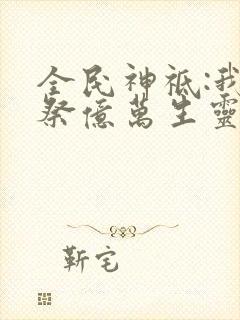 全民神祇:我
祭億萬生靈
靳宅